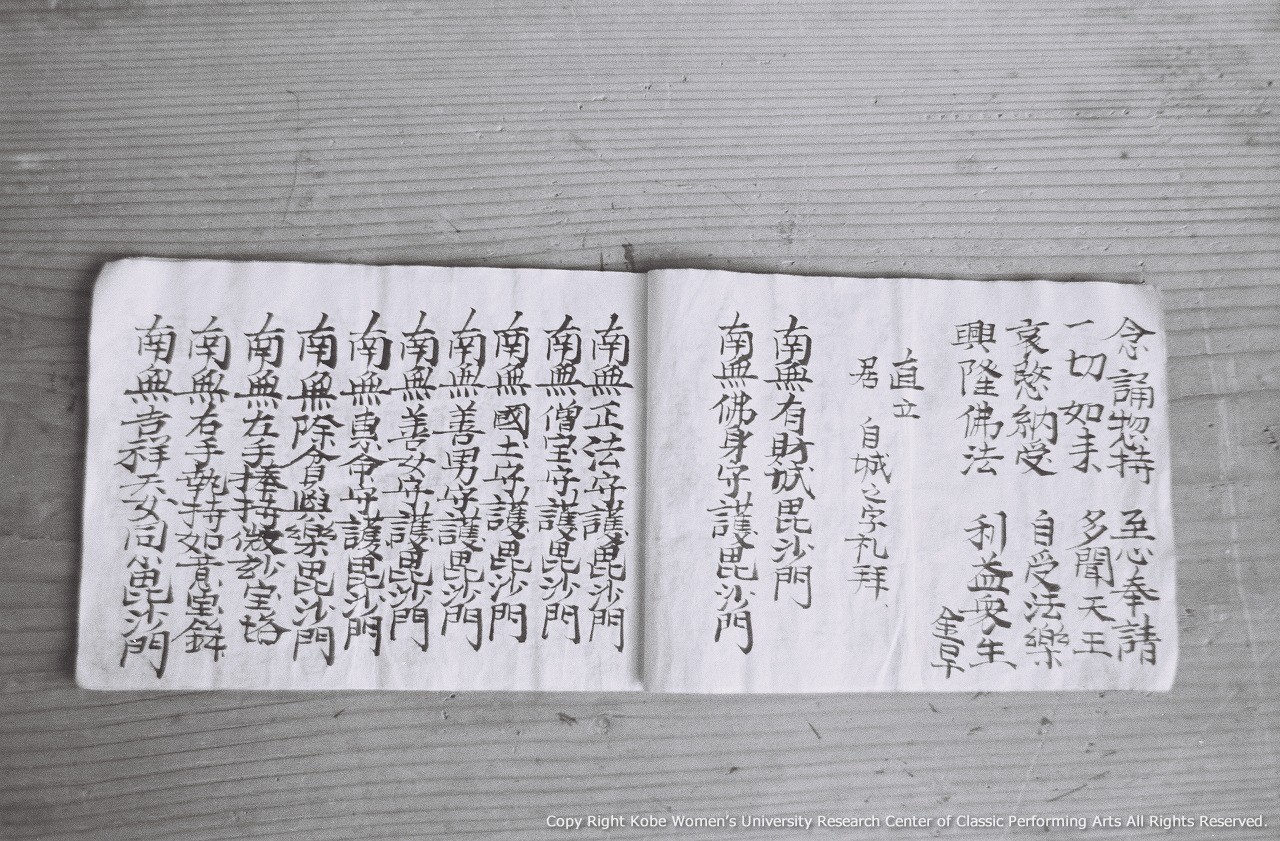 念誦惣持 至心奉請
一切如来 多聞天王
哀愍納受 自受法樂
興隆佛法 利益衆生
金旱
直立
居 自城之字礼拜
南無有財城毘沙門
南無佛身守護毘沙門
南無正法守護毘沙門
南無僧宝守護毘沙門
南無國土守護毘沙門
南無善男守護毘沙門
南無善女守護毘沙門
南無專令守護毘沙門
南無除貧與樂毘沙門
南無左手捧持微妙宝塔
南無右手執持如意宝鉾
南無吉祥天女同心毘沙門
Copy Right Kobe Women's University Research Center of Classic Performing Arts All Rights Reserved.